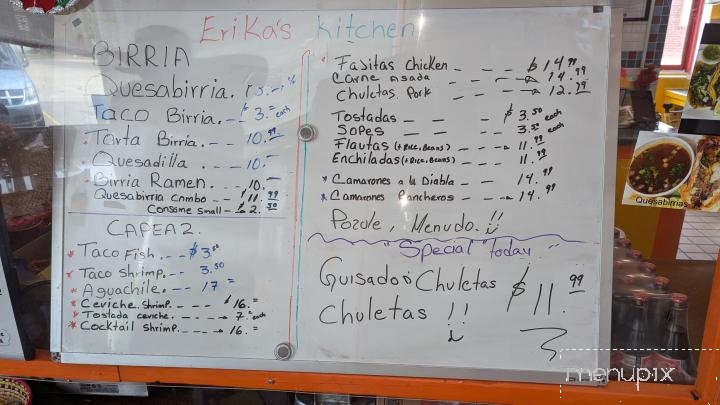 Erika's kitchen
BIRRIA
Quesabirria.
Taco Birria. -- $3.= each
Torta Birria. -- 10.99
Quesadilla -- 10.-
Birria Ramen. -- 10.-
Quesabirria combo -- $11.99
Consome small -- 2.50
CAPEA2.
Taco Fish. -- $3.50
Taco shrimp. -- 3.50
Aguachile. -- 17=
Ceviche shrimp. --- $16.=
Tostada ceviche. --- 7.= each
Cocktail shrimp. --- 16.=
Fajitas Chicken --- $14.99
Carne Asada --- 14.99
Chuletas Pork --- 12.99
Tostadas --- $3.50 each
Sopes --- 3.50 each
Flautas (+Rice, Beans) --- 11.99
Enchiladas (+Rice, Beans) --- 11.99
Camarones a la Diabla -- 14.99
Camarones Rancheros -- 14.99
Pozole, Menudo.!!
"Special Today"
Guisado: Chuletas $11.99
Chuletas !!
Quesabirrias
menupix